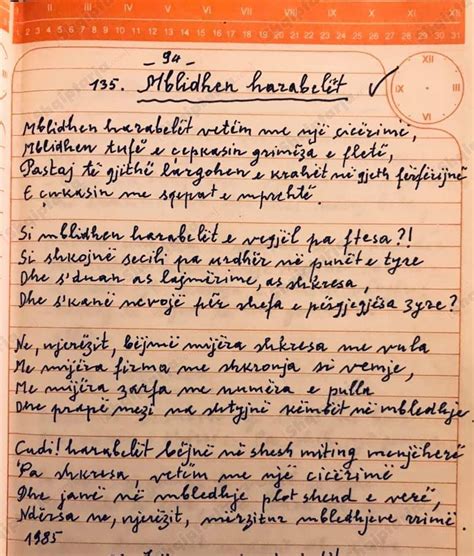 II III IIII IX X XI XII
1 2 3 4 5 6 7 8 9 10 11 12 13 14 15 16 17 18 19 20 21 22 23 24 25 26 27 28 29 30 31
- 94 -
XII
IX III
VI
135. Mblidhen harabelët ✓
Mblidhen harabelët vetëm me një cicërimë,
Mblidhen tufë e çepkasin grimëza e fletë,
Pastaj të gjithë largohen e krahët në gjeth fërfërijnë
E çukasin me sqepat e mprehtë.
Si mblidhen harabelët e vegjël pa ftesa?!
Si shkojnë secili pa urdhër në punët e tyre
Dhe s'duan as lajmërime, as shkresa,
Dhe s'kanë nevojë për shefa e përgjegjësa zyre?
Ne, njerëzit, bëjmë mijëra shkresa me vula
Me mijëra firma me shkronja si vemje,
Me mijëra zarfa me numëra e pulla
Dhe prapë mezi na shtyjnë këmbët në mbledhje.
Çudi! harabelët bëjnë në shesh miting menjëherë
Pa shkresa, vetëm me një cicërimë
Dhe janë në mbledhje plot shend e verë,
Ndërsa ne, njerëzit, mërzitur mbledhjeve rrimë
1985